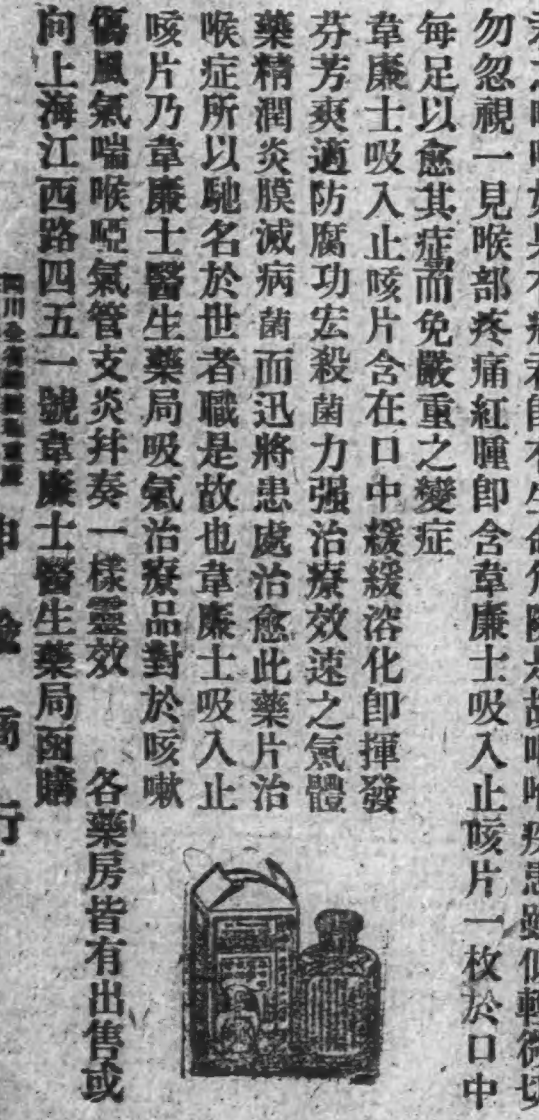 勿忽視一見喉部疼痛紅腫卽含韋廉士吸入止咳片一枚於口中
每足以愈其症而免嚴重之變症
韋廉士吸入止咳片含在口中緩緩溶化卽揮發
芬芳爽適防腐功宏殺菌力强治療效速之氣體
藥精潤炎膜滅病菌而迅將患處治愈此藥片治
喉症所以馳名於世者職是故也韋廉士吸入止
咳片乃韋廉士醫生藥局吸氣治療品對於咳嗽
傷風氣喘喉啞氣管支炎幷奏一樣靈效　各藥房皆有出售或
向上海江西路四五一號韋廉士醫生藥局函購
行